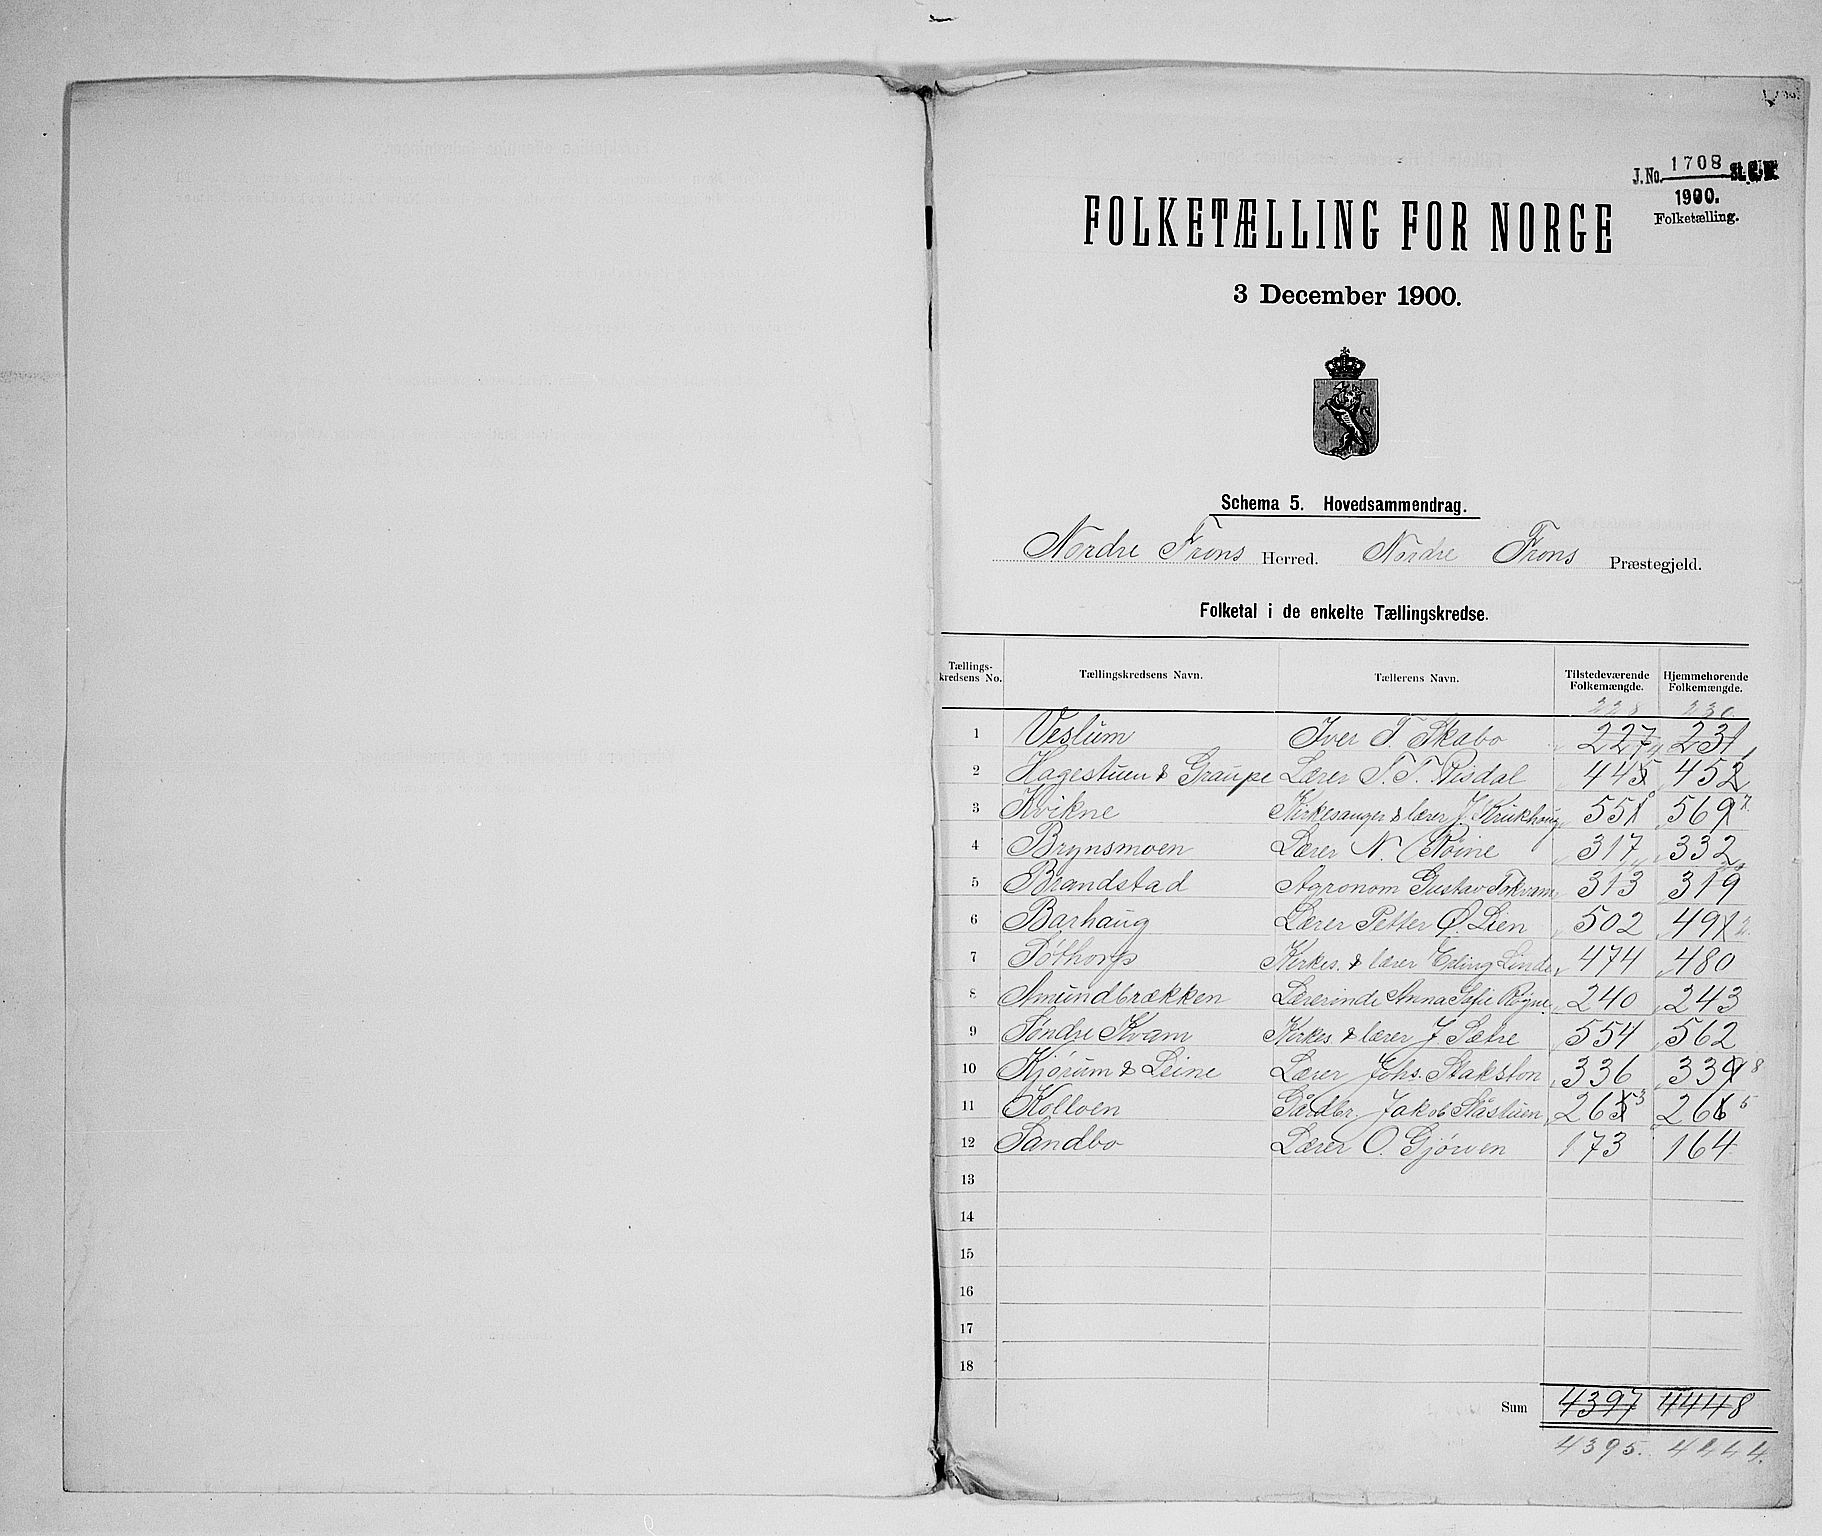 J.No. 1708 St. C. B.
1900.
Folketælling.
FOLKETÆLLING FOR NORGE
3 December 1900.
Schema 5. Hovedsammendrag.
Nordre Frons Herred. Nordre Frons Præstegjeld.
Folketal i de enkelte Tællingskredse.
Tællings-kredsens No. Tællingskredsens Navn. Tællerens Navn. Tilstedeværende Folkemængde. Hjemmehørende Folkemængde.
228 230
1 Veslum Iver T. Skabo 227 231
2 Hagestuen & Graupe Lærer T. T. Visdal 445 452
3 Kvikne Kirkesanger & lærer J. Krukhoug 551 569
4 Brynsmoen Lærer N. Röine 317 332
5 Brandstad Agronom Gustav Tokvam 313 319
6 Barhaug Lærer Petter Ø. Lien 502 491
7 Tøthorp Kirkes. & lærer Erling Linde 474 480
8 Amundbrækken Lærerinde Anna Sofie Røgne 240 243
9 Søndre Kvam Kirkes. & lærer J Sætre 554 562
10 Kjørum & Leine Lærer Johs. Stakston 336 339 8
11 Kolloen Gårdbr. Jakob Slåstuen 265 3 266 5
12 Sandbo Lærer O. Gjørven 173 164
13
14
15
16
17
18
Sum 4397 4448
4395. 4444.